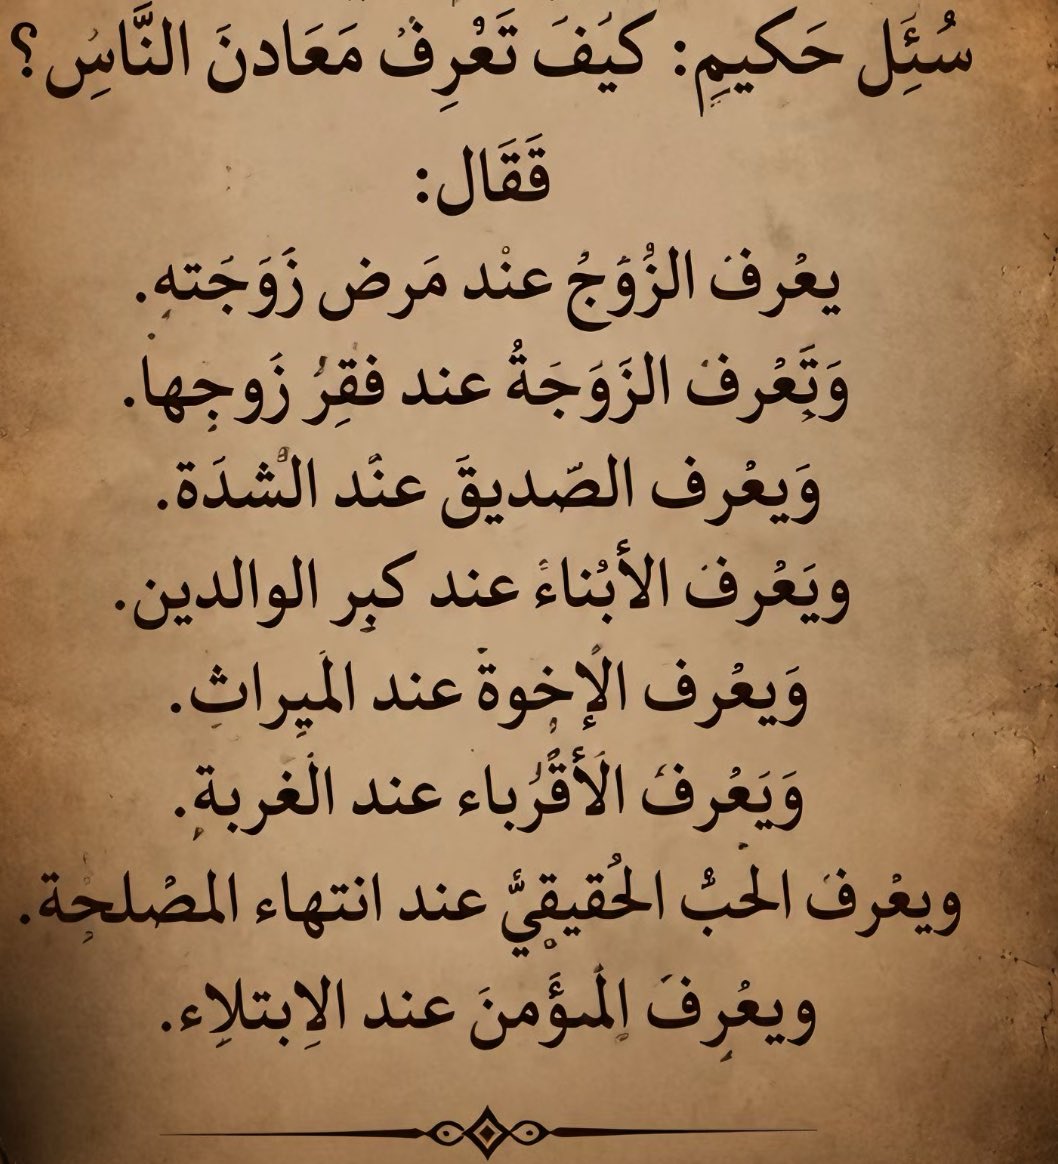 سُئَِل حَكيمٍ: كيَفَ تَعْرِفُ مَعَادنَ النَّاسِ؟
فَقَال:
يعْرفَ الزُوَّجُ عنْد مَرض زَوَجَته.
وَتَعْرفَ الزَوَجَةُ عند فقِرُ زَوجِها.
وَيعْرف الصّديقَ عنْد الشدَة.
ويَعْرفَ الأبْناءَ عند كبِر الوالدين.
وَيعْرف الإخوة عند الميِراث.
وَيَعْرفَ الأقْرُباء عند الغربة.
ويعْرفَ الحبُّ الحُقيقيَّ عند انتهاء المصْلحِة.
ويعْرِفَ المؤَمنَ عند الاِبتلاِء.